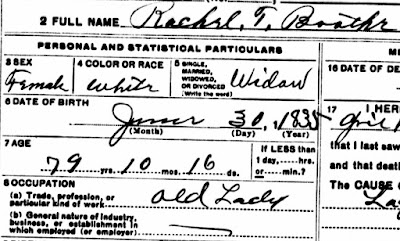 2 FULL NAME Rachel. T. Boothr
PERSONAL AND STATISTICAL PARTICULARS
3 SEX Female
4 COLOR OR RACE white
5 SINGLE, MARRIED, WIDOWED, OR DIVORCED (Write the word) Widow
16 DATE OF DE
6 DATE OF BIRTH
30, 1835
(Month) (Day) (Year)
17 I HERE
that I last saw
7 AGE
79 yrs. 10 mos. 16 ds.
If LESS than 1 day,....hrs. or....min.?
and that deat
The CAUSE O
8 OCCUPATION
(a) Trade, profession, or particular kind of work Old Lady
(b) General nature of industry, business, or establishment in which employed (or employer)